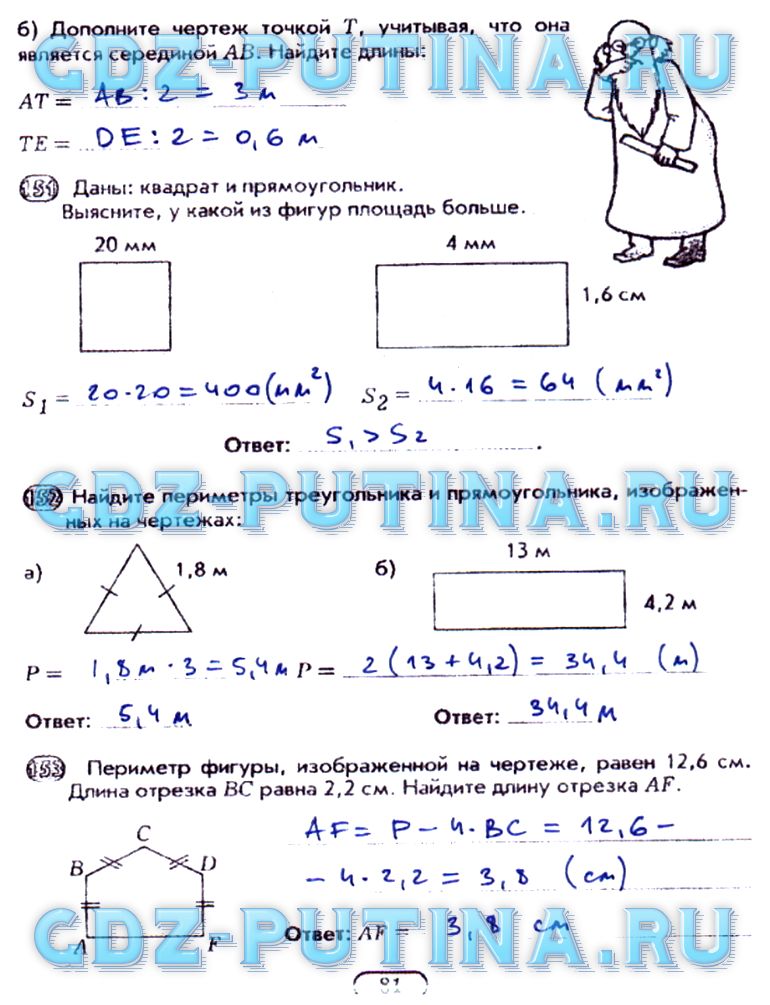 б) Дополните чертеж точкой T, учитывая, что она
является серединой AB. Найдите длины:
GDZ-PUTINA.RU
AT = AB : 2 = 3 м
TE = DE : 2 = 0,6 м
151 Даны: квадрат и прямоугольник.
Выясните, у какой из фигур площадь больше.
20 мм 4 мм
1,6 см
GDZ-PUTINA.RU
S1 = 20·20 = 400 (мм²) S2 = 4·16 = 64 (мм²)
Ответ: S1 > S2 .
GDZ-PUTINA.RU
152 Найдите периметры треугольника и прямоугольника, изображен-
ных на чертежах:
а) 1,8 м б) 13 м
4,2 м
P = 1,8 м · 3 = 5,4 м P = 2 (13 + 4,2) = 34,4 (м)
Ответ: 5,4 м Ответ: 34,4 м
153 Периметр фигуры, изображенной на чертеже, равен 12,6 см.
Длина отрезка BC равна 2,2 см. Найдите длину отрезка AF.
C
B D
A F
AF = P – 4·BC = 12,6 –
– 4·2,2 = 3,8 (см)
Ответ: AF = 3,8 см
GDZ-PUTINA.RU
81